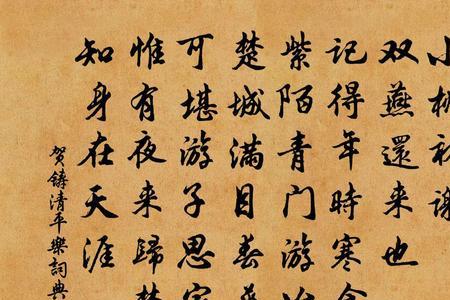 小桃初谢
双燕還来也
记得年時寒
紫陌青门游
楚城满目春
可堪游子思家
惟有夜来歸
知身在天涯
贺鑄清平樂詞典